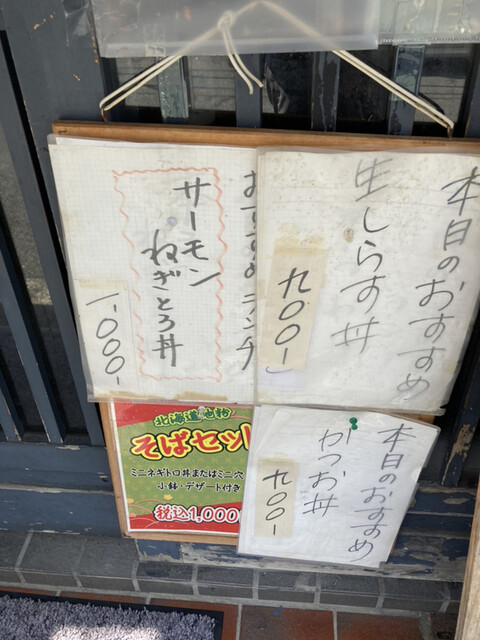 本日のおすすめ
生しらす丼
九〇〇-
おすすめランチ
サーモン
ねぎとろ丼
一、〇〇〇-
本日のおすすめ
かつお丼
九〇〇-
北海道
そばセット
ミニネギトロ丼またはミニ穴
小鉢・デザート付き
税込1,000